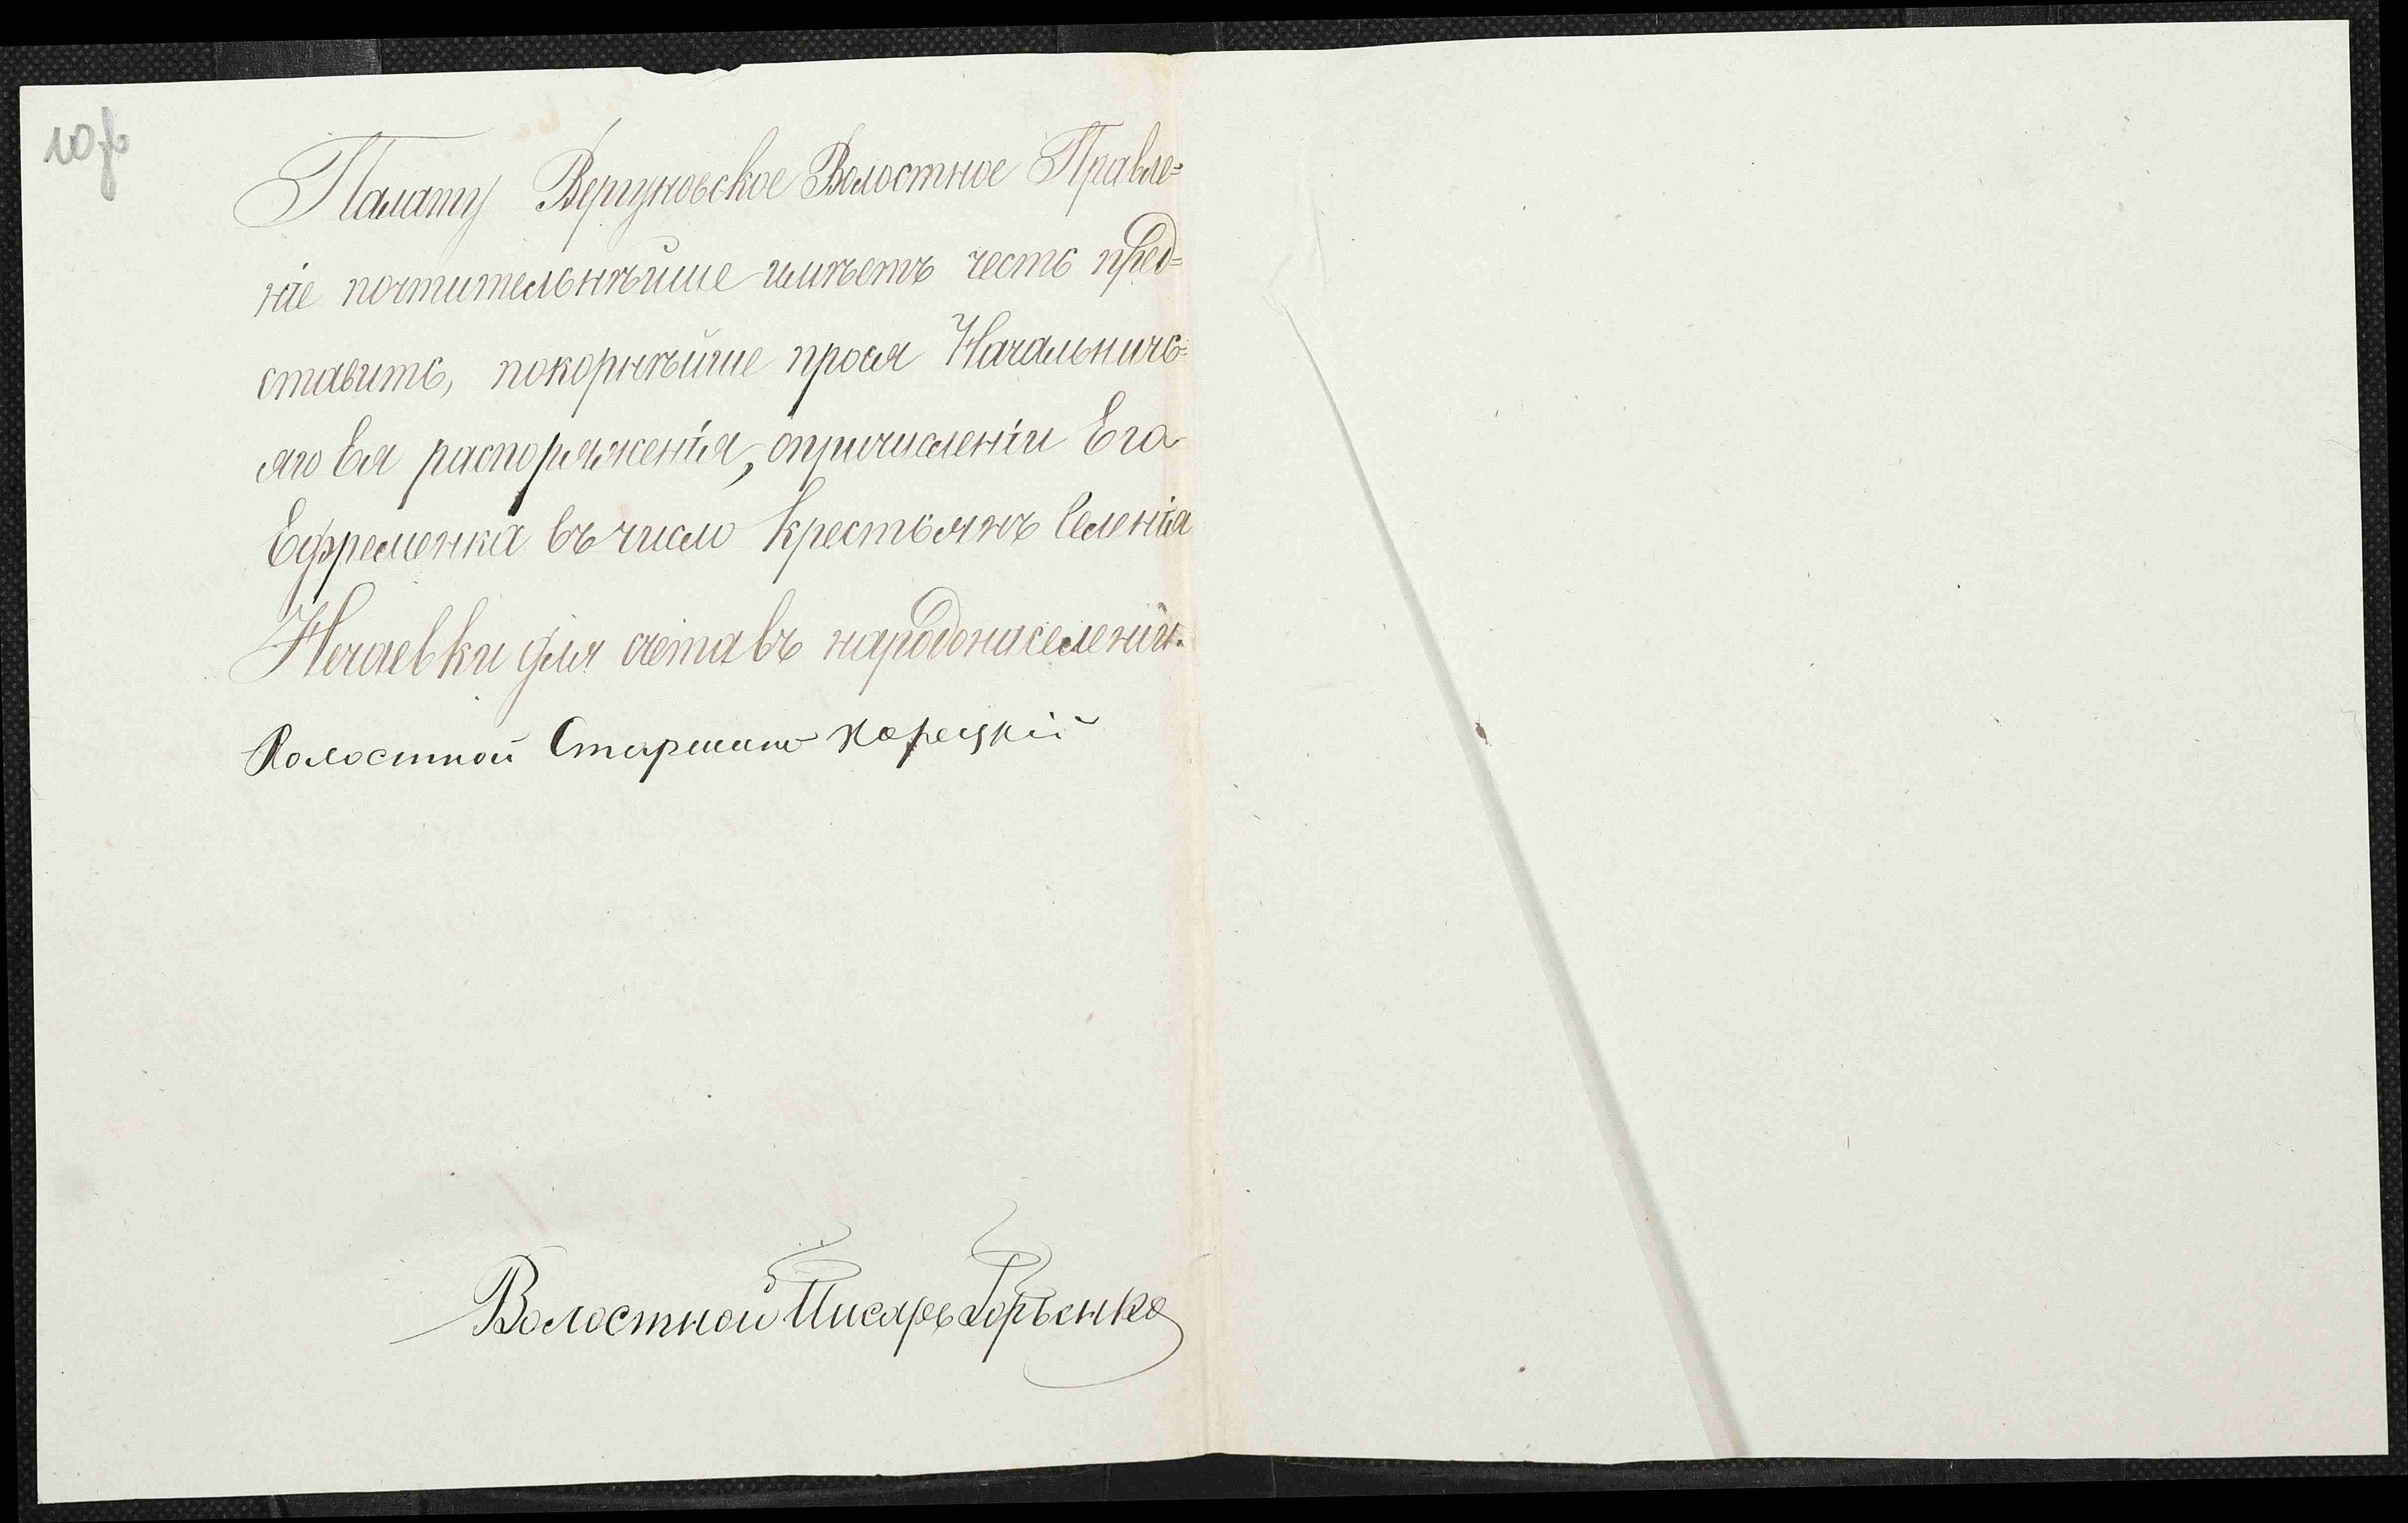 10об
Палату Вергуновское Волостное Правле=
ніе почтительнѣйше имѣетъ честь пред=
ставить, покорнѣйше прося Начальничь=
яго Ея распоряженія, опричисленіи Его
Ефременка въ число крестьянъ Селенія
Нечаевки для счета въ народонаселеніи.
Волостной Старшина Корецкій
Волостной Писарь Горѣенко